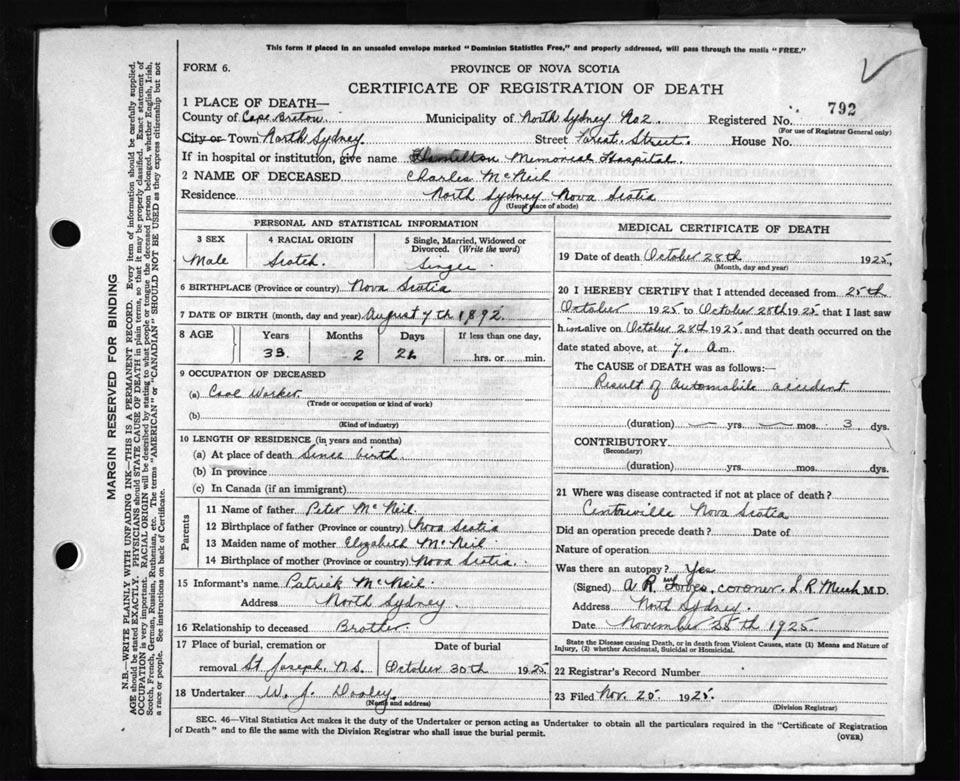 This form if placed in an unsealed envelope marked "Dominion Statistics Free," and properly addressed, will pass through the mails "FREE."
FORM 6.
PROVINCE OF NOVA SCOTIA
CERTIFICATE OF REGISTRATION OF DEATH
792
1 PLACE OF DEATH—
County of Cape Breton Municipality of North Sydney No2. Registered No.
(For use of Registrar General only)
City or Town North Sydney. Street Forest Street. House No.
If in hospital or institution, give name Hamilton Memorial Hospital.
2 NAME OF DECEASED Charles McNeil
Residence North Sydney Nova Scotia
(Usual place of abode)
PERSONAL AND STATISTICAL INFORMATION
3 SEX 4 RACIAL ORIGIN 5 Single, Married, Widowed or Divorced. (Write the word)
Male Scotch. Single
6 BIRTHPLACE (Province or country) Nova Scotia
7 DATE OF BIRTH (month, day and year) August 7th 1892.
8 AGE Years Months Days If less than one day,
33. 2 21 hrs. or min.
9 OCCUPATION OF DECEASED
(a) Coal Worker.
(Trade or occupation or kind of work)
(b)
(Kind of industry)
10 LENGTH OF RESIDENCE (in years and months)
(a) At place of death Since birth
(b) In province
(c) In Canada (if an immigrant)
Parents
11 Name of father Peter McNeil.
12 Birthplace of father (Province or country) Nova Scotia
13 Maiden name of mother Elizabeth McNeil
14 Birthplace of mother (Province or country) Nova Scotia.
15 Informant's name Patrick McNeil.
Address North Sydney.
16 Relationship to deceased Brother.
17 Place of burial, cremation or Date of burial
removal St Joseph N.S. October 30th 1925
18 Undertaker W. J. Dooley.
(Name and address)
MEDICAL CERTIFICATE OF DEATH
19 Date of death October 28th 1925.
(Month, day and year)
20 I HEREBY CERTIFY that I attended deceased from 25th
October 1925 to October 28th 1925 that I last saw
him alive on October 28th 1925 and that death occurred on the
date stated above, at 7. a.m.
The CAUSE OF DEATH was as follows:—
Result of Automobile accident
(duration) yrs. mos. 3 dys.
CONTRIBUTORY
(Secondary)
(duration) yrs. mos. dys.
21 Where was disease contracted if not at place of death?
Centreville Nova Scotia
Did an operation precede death? Date of
Nature of operation
Was there an autopsy? Yes
(Signed) A. R. Forbes, coroner. L. R. M.D.
Address North Sydney.
Date November 25th 1925
State the Disease causing Death, or in death from Violent Causes, state (1) Means and Nature of
Injury, (2) whether Accidental, Suicidal or Homicidal.
22 Registrar's Record Number
23 Filed Nov. 25 1925.
(Division Registrar)
SEC. 46—Vital Statistics Act makes it the duty of the Undertaker or person acting as Undertaker to obtain all the particulars required in the "Certificate of Registration
of Death" and to file the same with the Division Registrar who shall issue the burial permit.
(OVER)
MARGIN RESERVED FOR BINDING
N.B.—WRITE PLAINLY WITH UNFADING INK—THIS IS A PERMANENT RECORD. Every item of information should be carefully supplied.
AGE should be stated EXACTLY. PHYSICIANS should STATE CAUSE OF DEATH in plain terms, so that it may be properly classified. Exact statement of
OCCUPATION is very important. RACIAL ORIGIN will be described by stating to what people or tongue the deceased person belonged, whether English, Irish,
Scotch, French, German, Russian, Ruthenian, etc. The terms "AMERICAN" or "CANADIAN" SHOULD NOT BE USED as they express citizenship but not
a race or people. See instructions on back of Certificate.